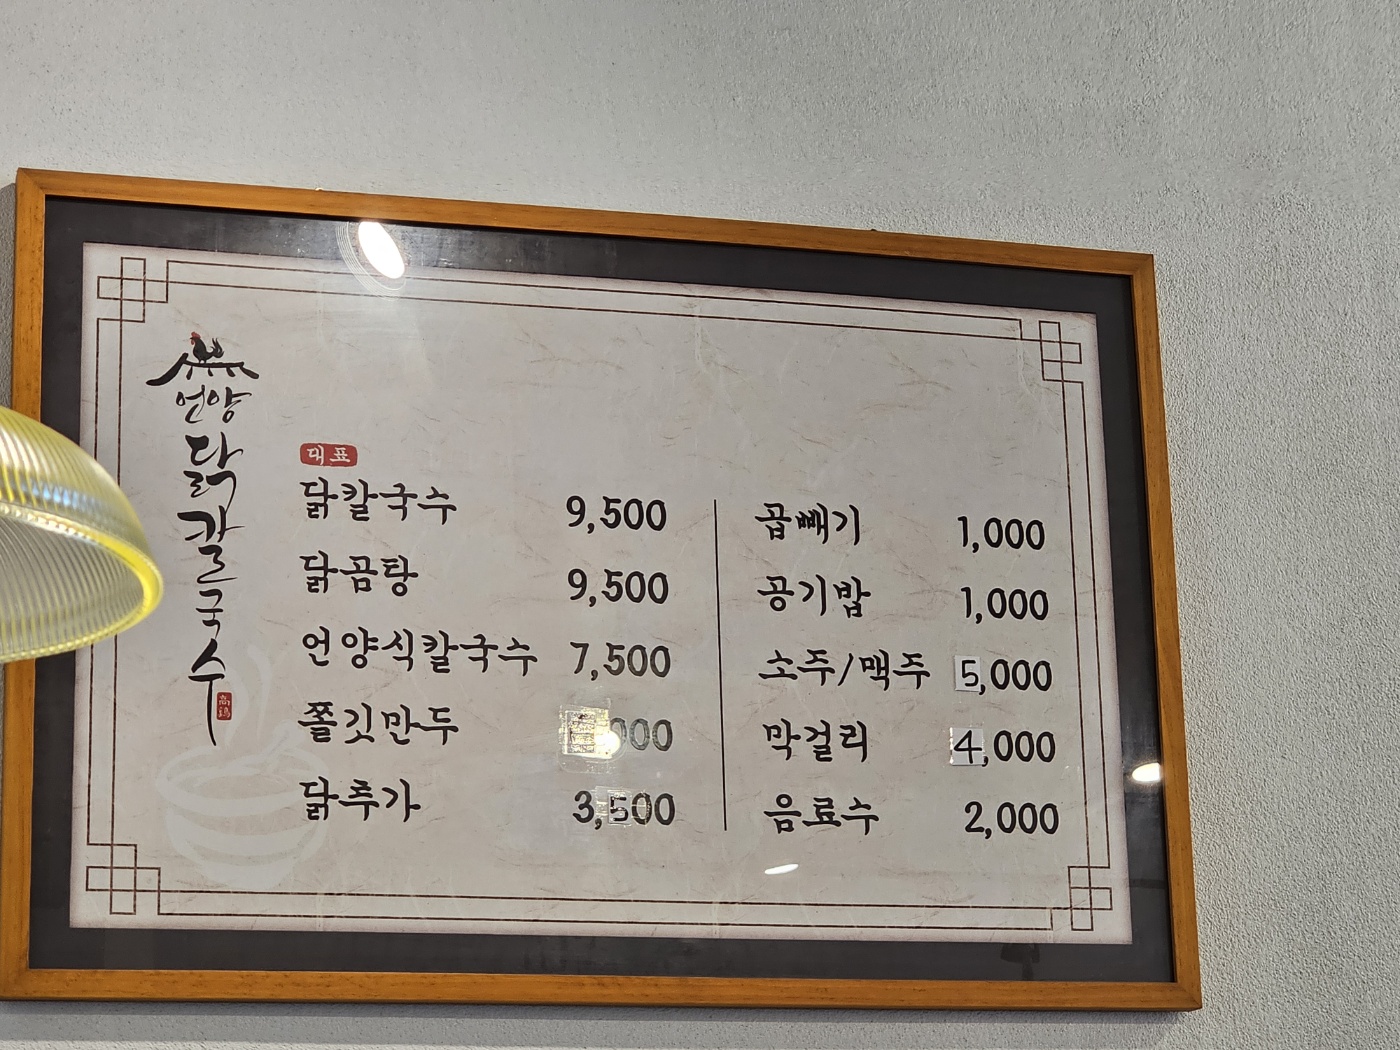 언양
닭칼국수
대표
닭칼국수 9,500
닭곰탕 9,500
언양식칼국수 7,500
쫄깃만두
닭추가 3,500
곱빼기 1,000
공기밥 1,000
소주/맥주 5,000
막걸리 4,000
음료수 2,000